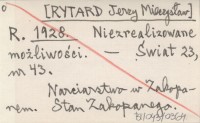 [RYTARD Jerzy Mieczysław]
R. 1928. Niezrealizowane
możliwości. — Świat 23,
nr 43.
Narciarstwo w Zakopa-
nem. Stan Zakopanego.